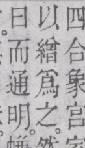 四合象宮
以繒爲之
日而通明